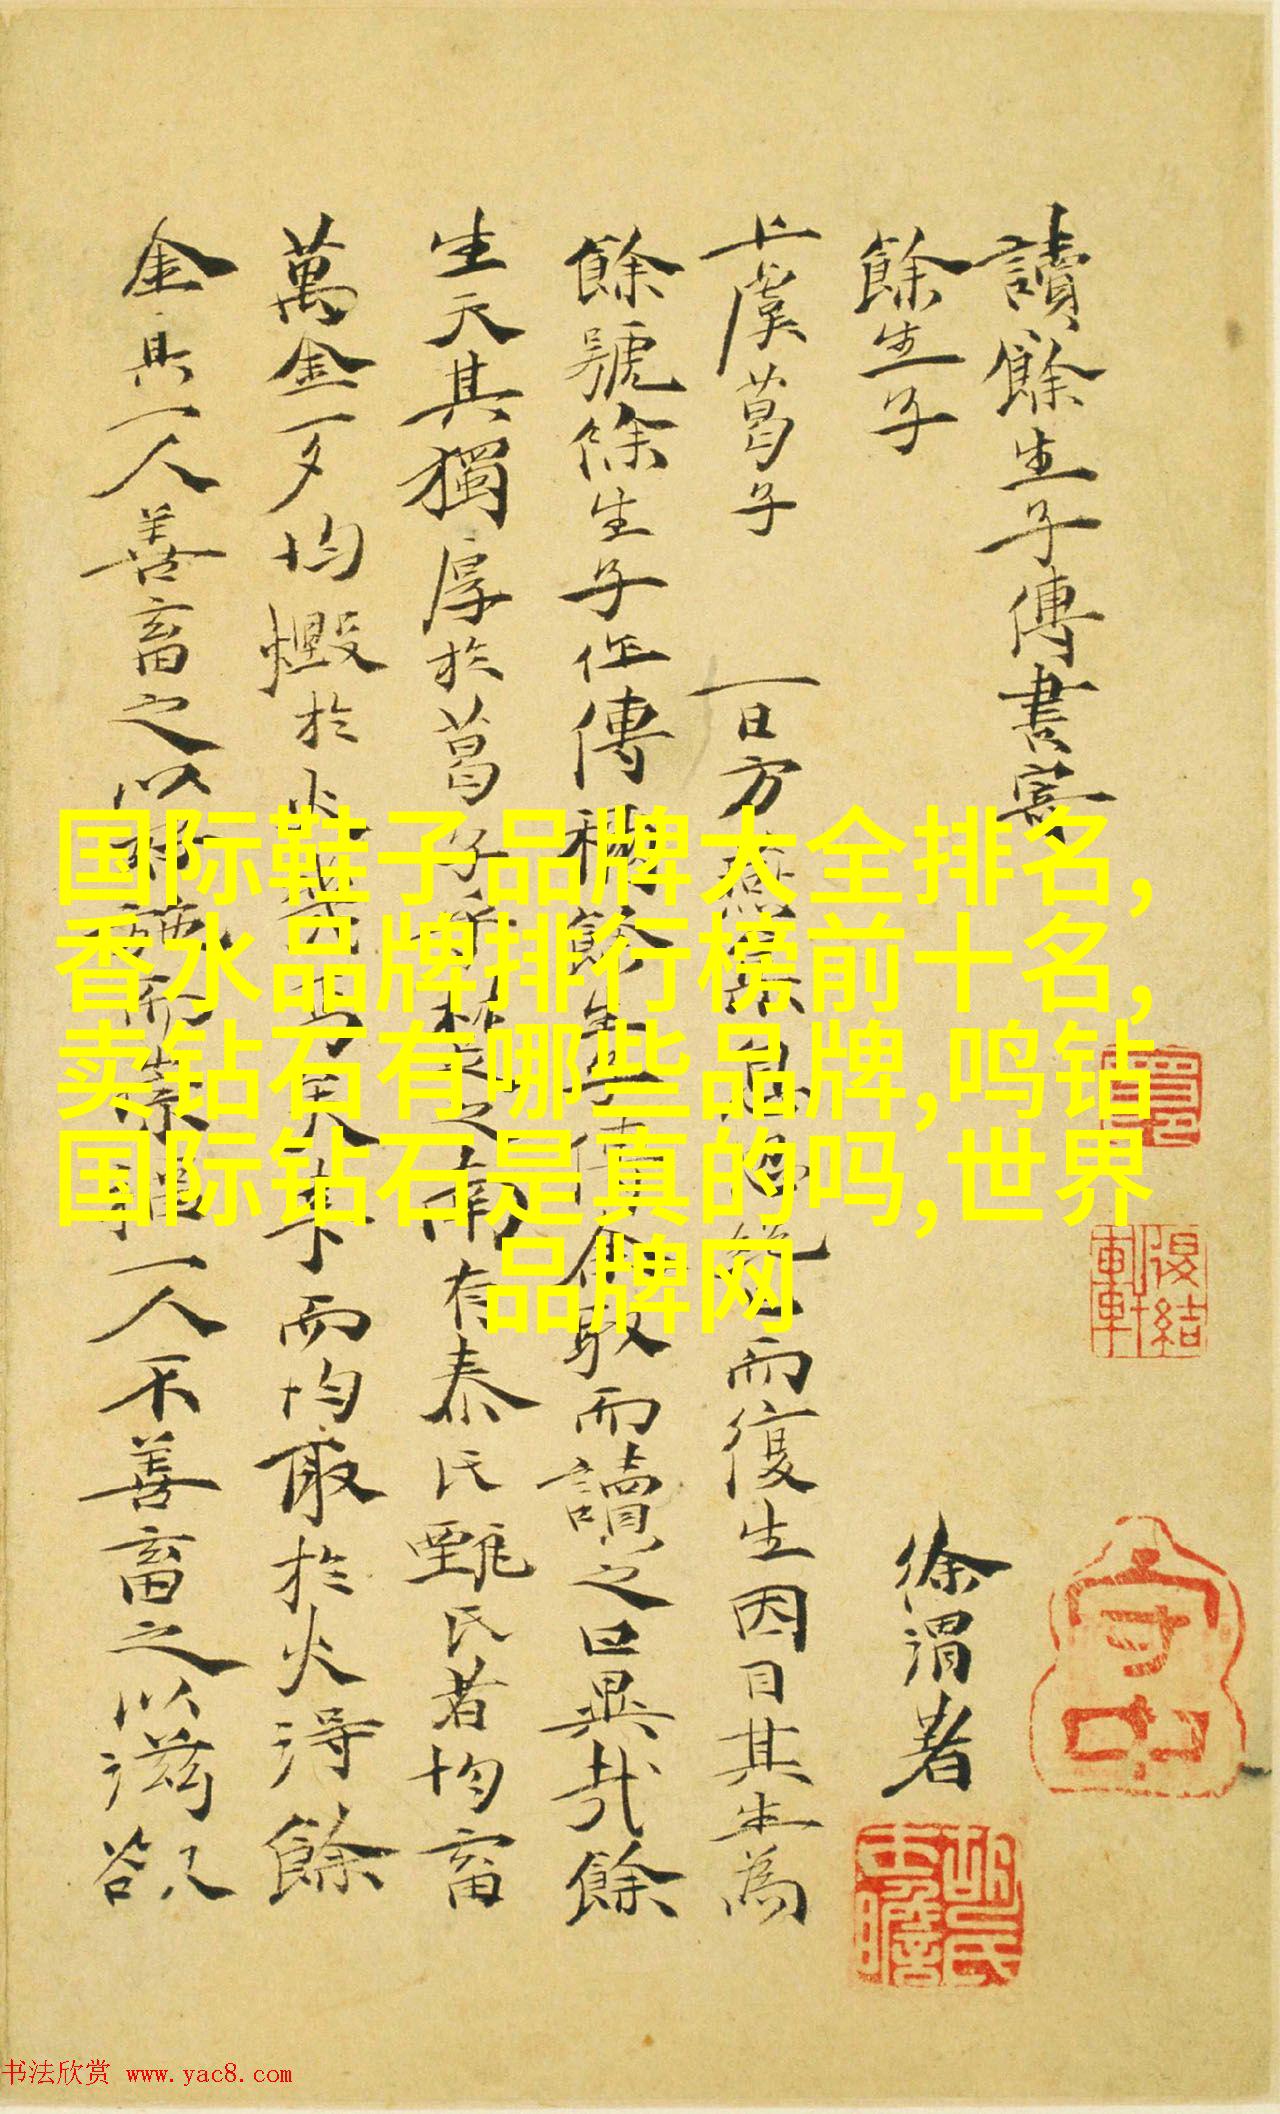 讀餘生子傳書寄
餘生子
徐渭著
上虞葛子 一日方燕 而復生因曰其生為
餘號餘生子任傳 餘生子傳 取而讀之曰異哉餘
生天其獨厚於葛子乎 之南有秦氏甄氏者均畜
萬金一夕均燬於火 而均取於火得餘
金具一人善畜之以 一人不善畜之以滋欲
国际鞋子品牌大全排名,
香水品牌排行榜前十名,
卖钻石有哪些品牌,鸣钻
国际钻石是真的吗,世界
品牌网
守中
书法欣赏 www.yac8.com